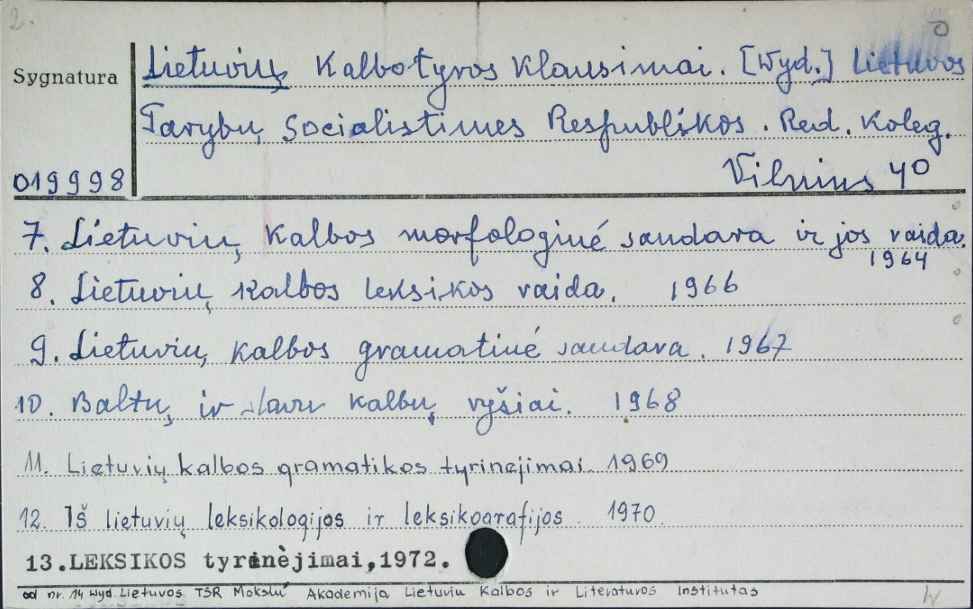 2.
Sygnatura
Lietuvių Kalbotyros Klausimai. [Wyd.] Lietuvos
Tarybų Socialistines Respublikos. Red. Koleg.
019998
Vilnius 40
7. Lietuvių kalbos morfologinė sandara ir jos raida.
1964
8. Lietuvių kalbos leksikos raida. 1966
9. Lietuvių kalbos gramatinė sandara. 1967
10. Baltų ir slavų kalbų ryšiai. 1968
11. Lietuvių kalbos gramatikos tyrinejimai 1969
12. Iš lietuvių leksikologijos ir leksikografijos 1970.
13.LEKSIKOS tyrinėjimai,1972.
od nr. 14 wyd. Lietuvos TSR Mokslų Akademija Lietuviu Kalbos ir Literatūros Institutas